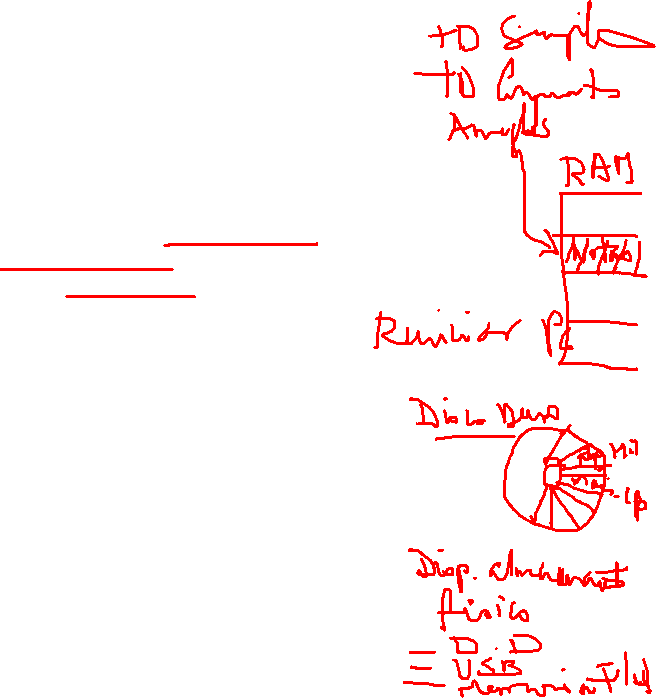 TD Simple
TD Compuesto
Arreglos
RAM
Reiniciar PC
Disco Duro
Disp. almacenamiento
físico
D.D
USB
Memoria Flash